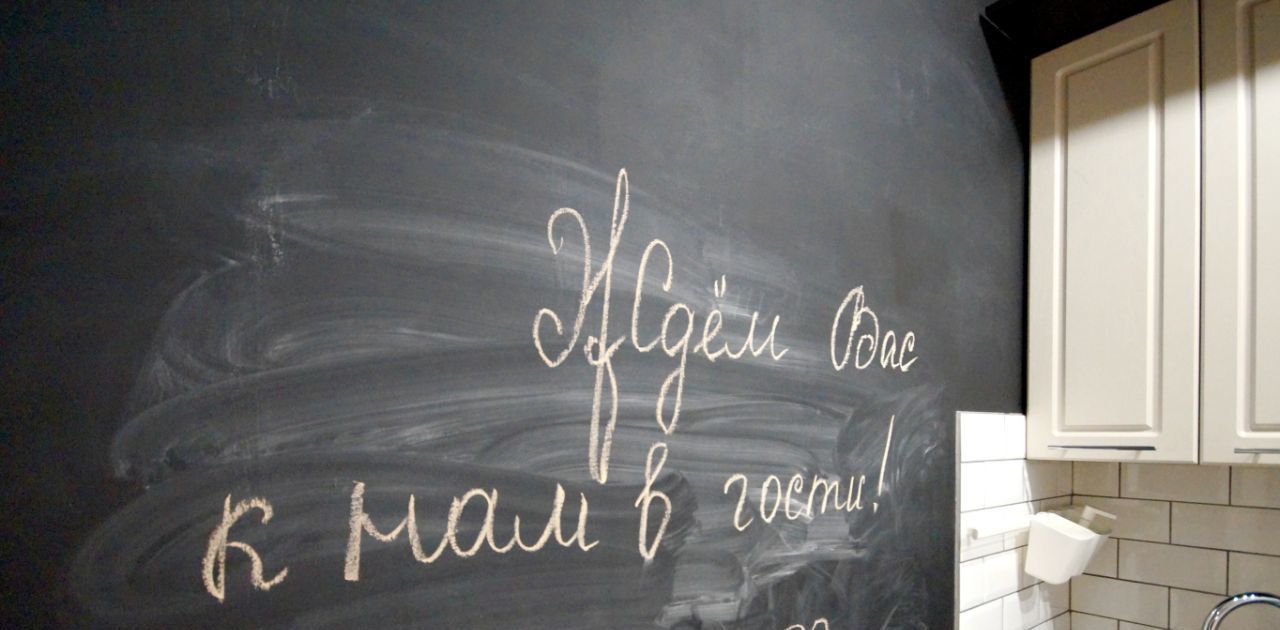 Ждём Вас
к нам в гости!